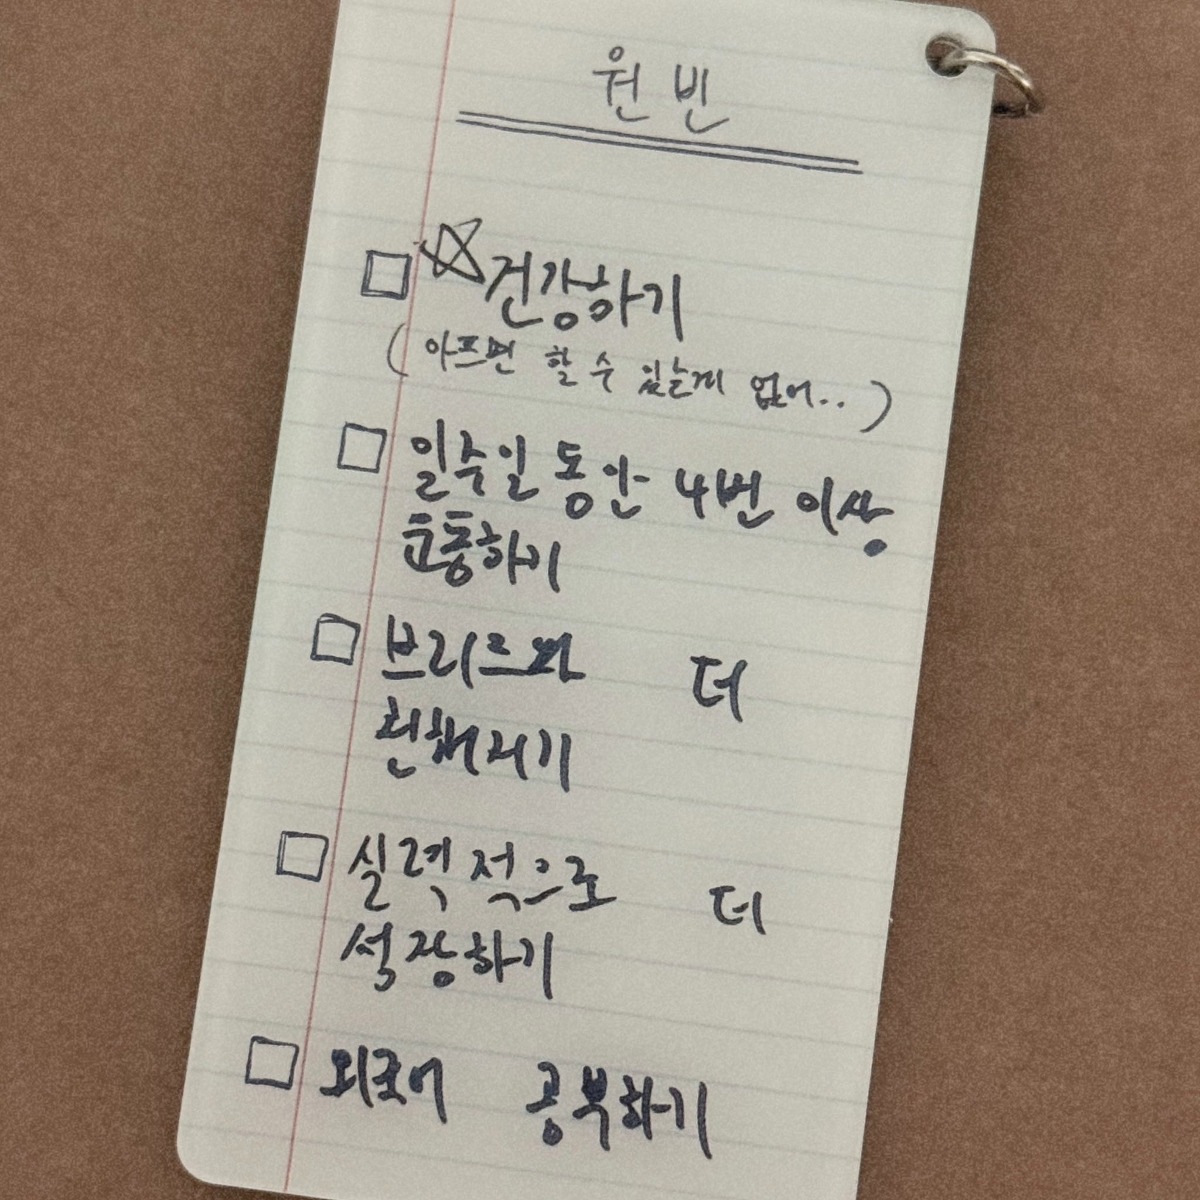 원빈
건강하기
(아프면 할 수 있는게 없어..)
일주일 동안 4번 이상
운동하기
브리즈와 더
친해지기
실력적으로 더
성장하기
외국어 공부하기